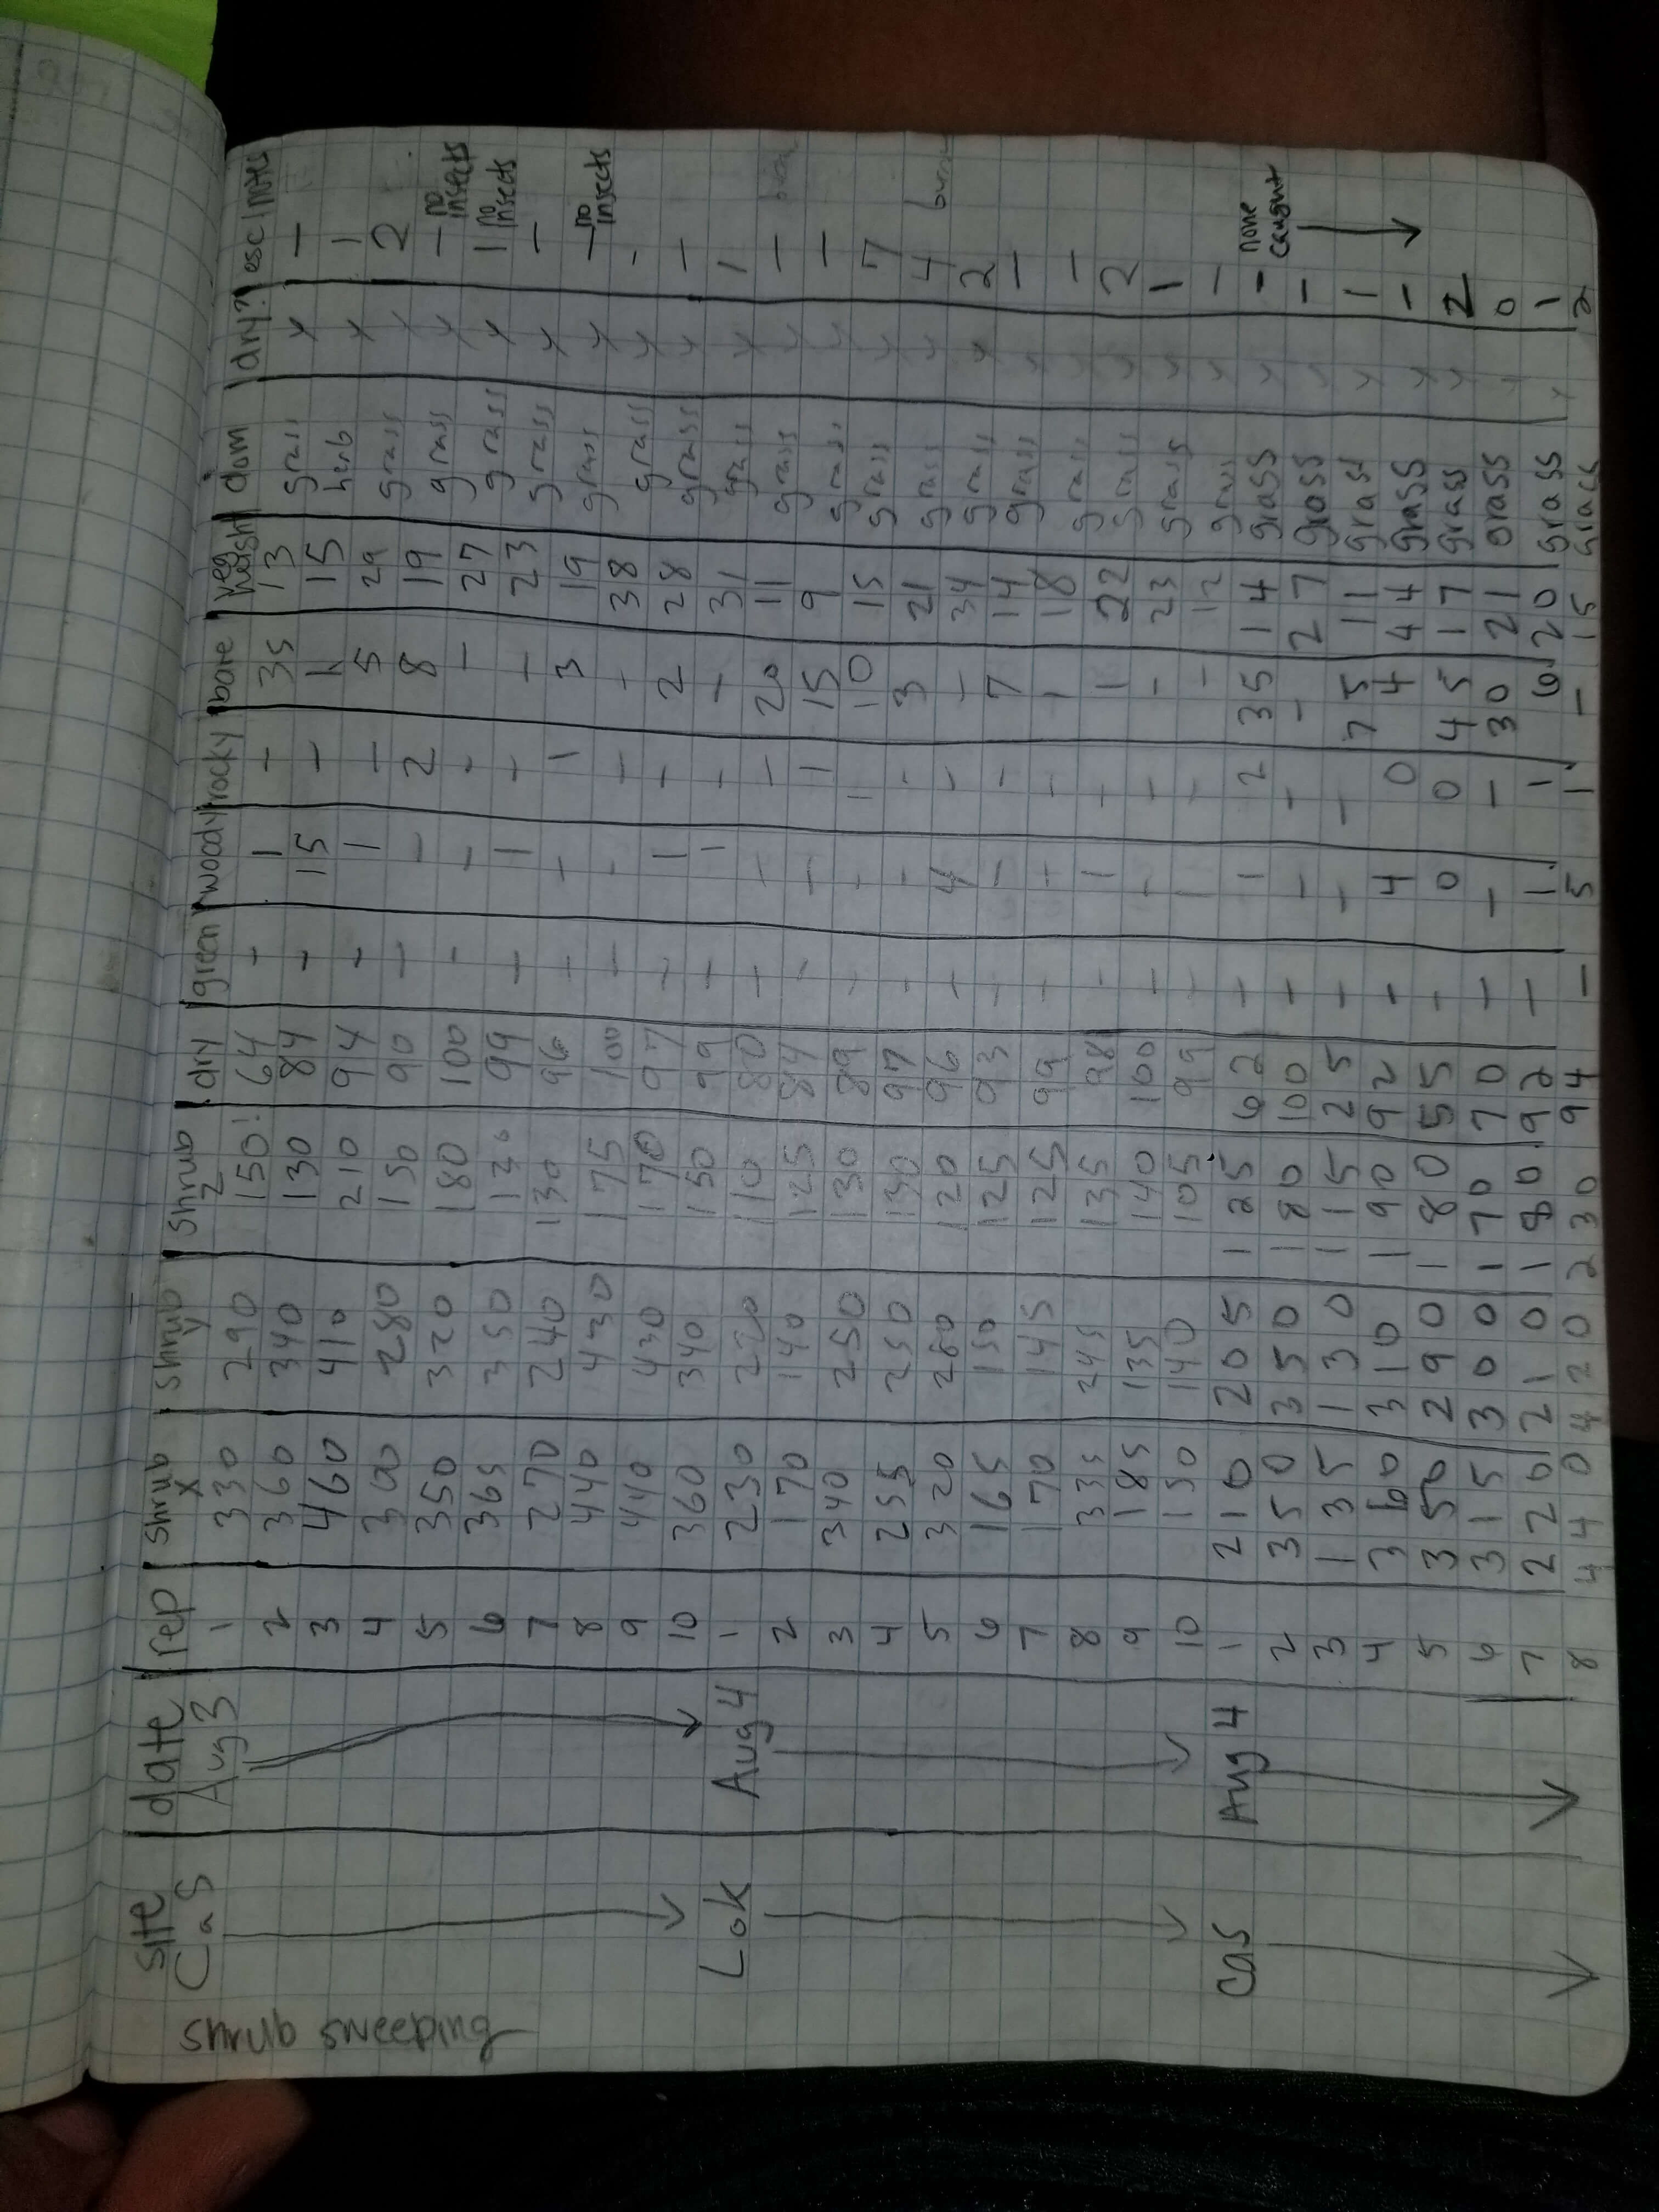 shrub sweeping
site | date | rep | shrub x | shrub y | shrub z | dry | green | woody | rocky | bare | veg height | dom | dry? | esc/notes
CaS Aug 3 1 330 290 150 64 - 1 - 35 13 grass Y -
2 360 340 130 84 - 15 - 1 15 herb Y 1
3 460 410 210 94 - 1 - 5 29 grass Y 2
4 300 280 150 90 - - 2 8 19 grass Y - no insects
5 350 320 180 100 - - - - 27 grass Y 1 no insects
6 365 350 120 99 - 1 - - 23 grass Y -
7 270 240 130 96 - - 1 3 19 grass Y - no insects
8 440 430 175 100 - - - - 38 grass Y -
9 440 430 170 97 - 1 - 2 28 grass Y -
10 360 340 150 99 - 1 - - 31 grass Y 1
Lok Aug 4 1 230 220 110 80 - - - 20 11 grass Y -
2 170 140 125 84 - - 1 15 9 grass Y -
3 340 250 130 89 - - 1 10 15 grass Y 7
4 255 250 130 97 - - - 3 21 grass Y 4
5 320 260 120 96 - 4 - - 34 grass Y 2
6 165 150 125 93 - - - 7 14 grass Y -
7 170 145 125 99 - - - 1 18 grass Y -
8 335 245 135 98 - 1 - 1 22 grass Y 2
9 185 135 140 100 - - - - 23 grass Y 1
10 150 140 105 99 - 1 - - 12 grass Y -
CaS Aug 4 1 210 205 125 62 - 1 2 35 14 grass Y - none caught
2 350 350 180 100 - - - - 27 grass Y -
3 135 130 115 25 - - - 75 11 grass Y 1
4 360 310 190 92 - 4 0 4 44 grass Y -
5 350 290 180 55 - 0 0 45 17 grass Y 2
6 315 300 170 70 - - - 30 21 grass Y 0
7 220 210 180 92 - 1 1 6 20 grass Y 1
8 440 420 230 94 - 5 1 - 15 grass 2